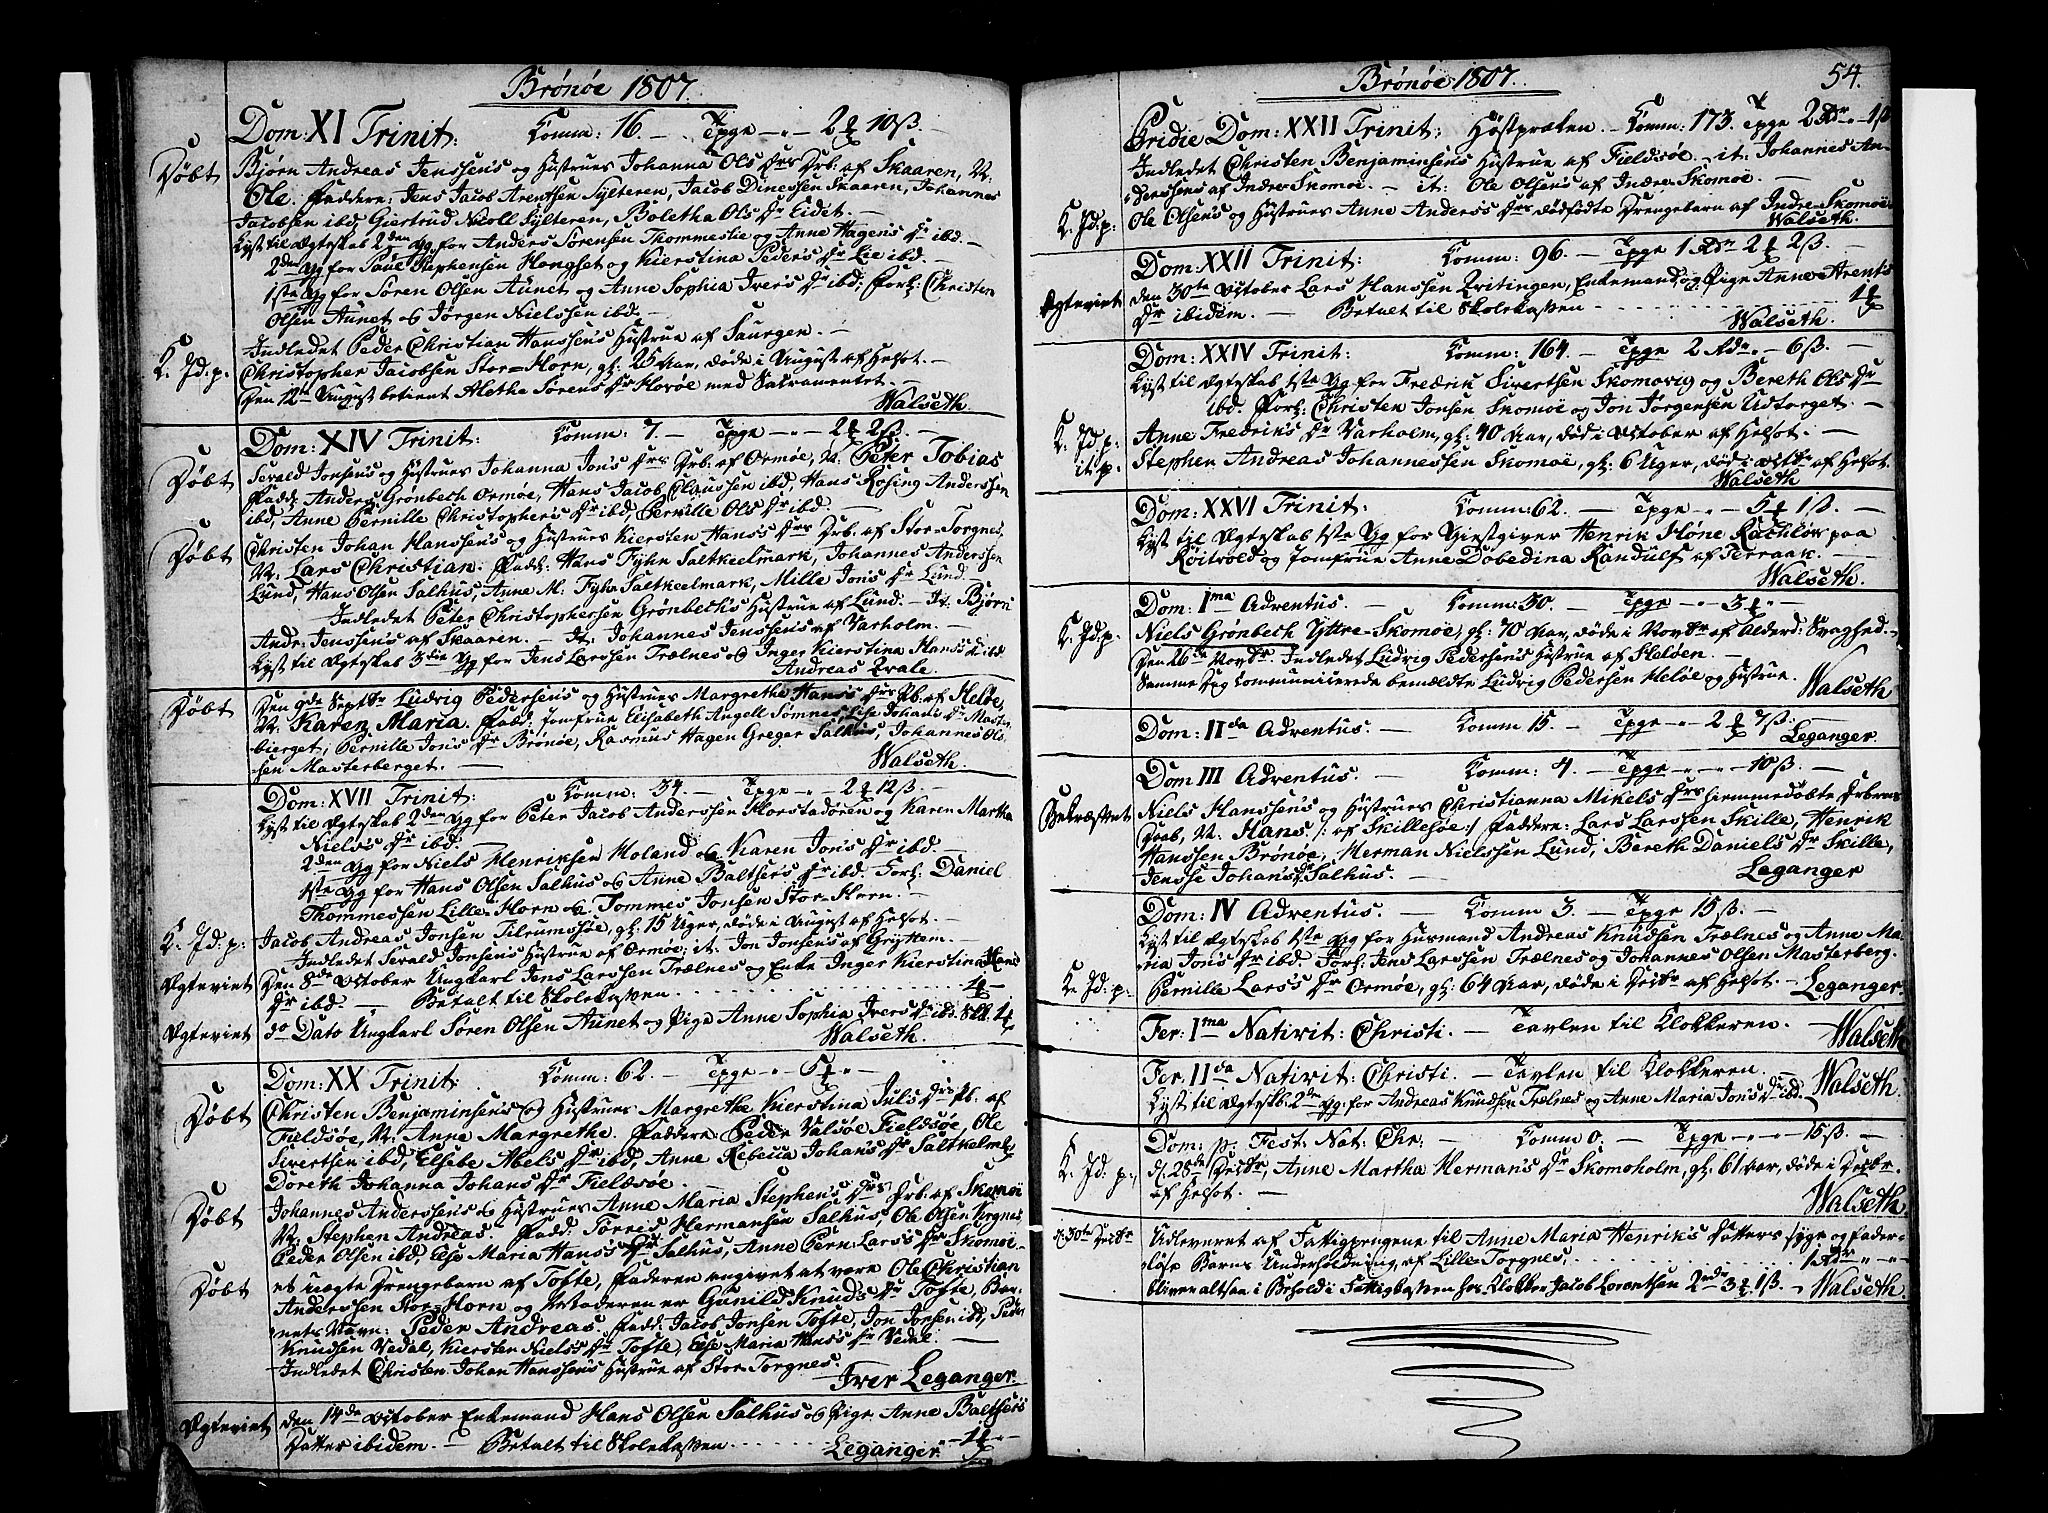 Brønøe 1807.
Dom: XI Trinit: Comm: 16. — Tvge — " — 2 ƶ 10 ß. —
Døbt
Bjørn Andreas Jenssen's og Hustrues Johanna Ols Drs Drb: af Skaaren, N:
Ole. Faddere: Jens Jacob Arentsen Sylteren, Jacob Dinessen Skaaren, Johannes
Jacobsen ibd, Giertrud Nicoll Sylteren, Boletha Ols Dr Eidet. —
Lyst til Ægteskab 2den Gg for Anders Sørensen Thommeslie og Anne Hagens Dr ibd. —
2den Gg for Paul Stephensen Hongset og Kierstina Peders Dr Lie ibd. —
1ste Gg for Søren Olsen Aunet og Anne Sophia Ivers Dr ibd; Forl: Christen
Olsen Aunet og Jørgen Nielssen ibd. —
Indledet Peder Christian Hanssen's Hustrue af Saurgen. —
K. Jd. p.
Christopher Jacobsen Stor-Horn, gl: 25 Aar, døde i August af Helsot. —
Den 12te August betient Alethe Sørens Dr Horøe med Sacramentet. —
Walseth.
Dom: XIV Trinit: Comm: 7. — Tvge — " — 2 ƶ 2 ß. —
Døbt
Sevald Jonsens og Hustrues Johanna Jons Drs Drb: af Ormøe, N: Peter Tobias
Fadd: Anders Grønbech Ormøe, Hans Jacob Claussen ibd, Hans Rosing Anderssen
ibd, Anne Pernille Christophers Dr ibd, Pernille Ols Dr ibd.
Døbt
Christen Johan Hanssen's og Hustrues Kiersten Hans's Drs Drb. af Stor-Torgnes,
N: Lars Christian. Fadd: Hans Fyhn Saltkeelmark, Johannes Anderssen
Lund, Hans Olsen Salhus, Anne M: Fyhn Saltkeelmark, Mille Jons Dr Lund.
Indledet Peter Christophersen Grønbech's Hustrue af Lund. — It: Bjørn
Andr: Jenssen's af Skaaren. — It: Johannes Jenssen's af Varholm. —
Lyst til Ægteskab 3die Gg for Jens Larssen Trælnes og Inger Kierstina Hans's D: ibd.
Andreas Qvale.
Døbt
Den 9de Septbr Ludvig Pedersens og Hustrues Margrethe Hans's Drs Pb. af Helde,
N: Karen Maria. Fadd: Jomfrue Elisabeth Angell Sømnes, Else Johans Dr Master-
bierget, Pernille Jons Dr Brønøe, Rasmus Hagen Greger Salhus, Johannes Ols-
sen Masterberget. —
Walseth.
Dom: XVII Trinit: Comm: 34. — Tvge — " — 2 ƶ 12 ß. —
Lyst til Ægteskab 2den Gg for Peter Jacob Anderssen Florstadøren og Karen Martha
Niels's Dr ibd. —
2den Gg for Niels Henriksen Moland og Karen Jons Dr ibd. —
1ste Gg for Hans Olsen Salhus og Anne Balthers Dr ibd. Forl: Daniel
Thommessen Lille-Horn og Tommes Jonsen Stor-Horn. —
K. Jd: p:
Jacob Andreas Jonsen Tilrumsøe, gl: 15 Uger, døde i August af Helsot. —
Indledet Sevald Jonsens Hustrue af Ormøe; it: Jon Jonsens af Gryttem. —
Ægteviet
Den 8de October Ungkarl Jens Larssen Trælnes og Enke Inger Kierstina Hans
Dr ibd. — Betalt til Skolekassen . . . . . . 1 ƶ —
Ægteviet
do Dato Ungkarl Søren Olsen Aunet og Pige Anne Sophia Ivers Dr ibd.
Walseth.
Dom: XX Trinit: Comm: 62. — Tvge — " — 5 ƶ " —
Døbt
Christen Benjaminsens og Hustrues Margrethe Kierstina Juls Drs Pb. af
Fieldsøe, N: Anne Margrethe. Faddere: Peder Valsøe Fieldsøe, Ole
Sivertsen ibd, Elsebe Abels Dr ibd, Anne Rebecca Johans Dr Saltkelmrk,
Doreth Johanna Johans Dr Fieldsøe. —
Døbt
Johannes Anderssens og Hustrues Anne Maria Stephens Drs Drb. af Skomøe
N: Stephen Andreas. Fadd: Torris Hermansen Salhus, Ole Olsen Torgnes,
Peder Olsen ibd, Else Maria Hans's Dr Salhus, Anne Pern: Lars's Dr Skomøe. —
Døbt
et uægte Drengebarn af Tofte, Faderen angivet at være Ole Christian
Anderssen Stor-Horn og Moderen er Gunild Knuds Dr Tofte, Bar-
nets Navn: Peder Andreas. Fadd: Jacob Jonsen Tofte, Jon Jonsen ibd, Peder
Knudsen Vedal, Kiersten Niels Dr Tofte, Else Maria Hans's Dr Vedal. —
Indledet Christen Johan Hanssens Hustrue af Stor-Torgnes.
Iver Leganger.
Ægteviet
den 14de October Enkemand Hans Olsen Salhus og Pige Anne Balthers
Datter ibidem. — Betalt til Skolekassen . . . . . . 1 ƶ —
Leganger
Brønøe 1807. 54.
Pridie Dom: XXII Trinit: Høstprøken. — Comm: 173. Tvge 2 Rdr " 1 ß
Indledet Christen Benjaminsens Hustrue af Fieldsøe. — it: Johannes An-
derssens af Indre Skomøe. — it: Ole Olsen's af Indre Skomøe. —
K. Jd. p:
Ole Olsen's og Hustrues Anne Anders's Drs dødfødte Drengebarn af Indre-Skomøe.
Walseth.
Dom: XXII Trinit: Comm: 96. — Tvge 1 Rdr 2 ƶ 2 ß. —
Ægteviet
den 30te October Lars Hanssen Qvitingen, Enkemand, og Pige Anne Arents
Dr ibidem. — Betalt til Skolekassen . . . . . . 1 ƶ
Walseth.
Dom: XXIV Trinit: Comm: 164. — Tvge 2 Rdr. — 6 ß. —
Lyst til Ægteskab 1ste Gg for Fredrik Sivertsen Skomovig og Bereth Ols Dr
ibd. Forl: Christen Jonsen Skomøe og Jon Jørgensen Udtorget. —
K. Jd. p:
Anne Fredriks Dr Varholm, gl: 40 Aar, død i October af Helsot. —
it p:
Stephen Andreas Johannessen Skomøe, gl: 6 Uger, død i Octbr af Helsot.
Walseth
Dom: XXVI Trinit: Comm: 62. — Tvge — " — 5 ƶ 1 ß. —
Lyst til Ægteskab 1ste Gg for Giestgiver Henrik Høne Rachløw paa
Røitvold og Jomfrue Anne Dobedina Randulf af Terraak. —
Walseth.
Dom: Ima Adventus. — Comm: 30. — Tvge — " 3 ƶ " —
K. Jd: p:
Niels Grønbech Yttre-Skomøe, gl: 70 Aar, døde i Novbr af Alderd: Svaghed. —
Den 26de Novbr Indledet Ludvig Pedersen's Hustrue af Helden. —
Samme Dag communicerede bemældte Ludvig Pedersen Heløe og Hustrue.
Walseth
Dom: IIda Adventus. — Comm 15. — Tvge " 2 ƶ 7 ß. —
Leganger.
Dom III Adventus. — Comm: 4. — Tvge — " — 10 ß. —
Bekræftet
Niels Hanssen's og Hustrues Christianna Mikels Drs hiemmedøbte Drenge-
Barn, N: Hans. /: af Skillesøe :/ Faddere: Lars Larssen Skille, Henrik
Hanssen Brønøe, Herman Nielssen Lund, Bereth Daniels Dr Skille,
Jensse Johans Dr Salhus. —
Leganger
Dom: IV Adventus. — Comm 3. — Tvge 15 ß. —
Lyst til Ægteskab 1ste Gg for Husmand Andreas Knudsen Trælnes og Anne Ma-
ria Jons Dr ibd. Forl: Jens Larssen Trælnes og Johannes Olsen Masterberg.
K. Jd: p:
Pernille Lars's Dr Ormøe, gl: 64 Aar, døde i Decbr af Helsot. — Leganger.
Fer: Ima Nativit: Christi. — Tavlen til Klokkeren. —
Walseth
Fer: IIda Nativit: Christi. — Tavlen til Klokkeren. —
Lyst til Ægteskb. 2de Gg: for Andreas Knudsen Trælnes og Anne Maria Jons Dr ibd.
Walseth.
Dom: p. Fest: Nat: Chr: — Comm 0. — Tvge — " — 15 ß. —
K. Jd. p:
d. 28de Decbr, Anne Martha Hermans Dr Skomoholm, gl: 61 Aar, døde i Decbr.
af Helsot. —
Walseth.
d. 30te Decbr
Udleveret af Fattigpengene til Anne Maria Henriks Datters syge og fader-
løse Barns Underholdning, af Lille-Torgnes . . . . . . 1 Rdr " — "
bliver altsaa i Behold i Fattigkassen hos Klokker Jacob Lorentsen 2 rdr 3 ƶ 1 ß. — Walseth.